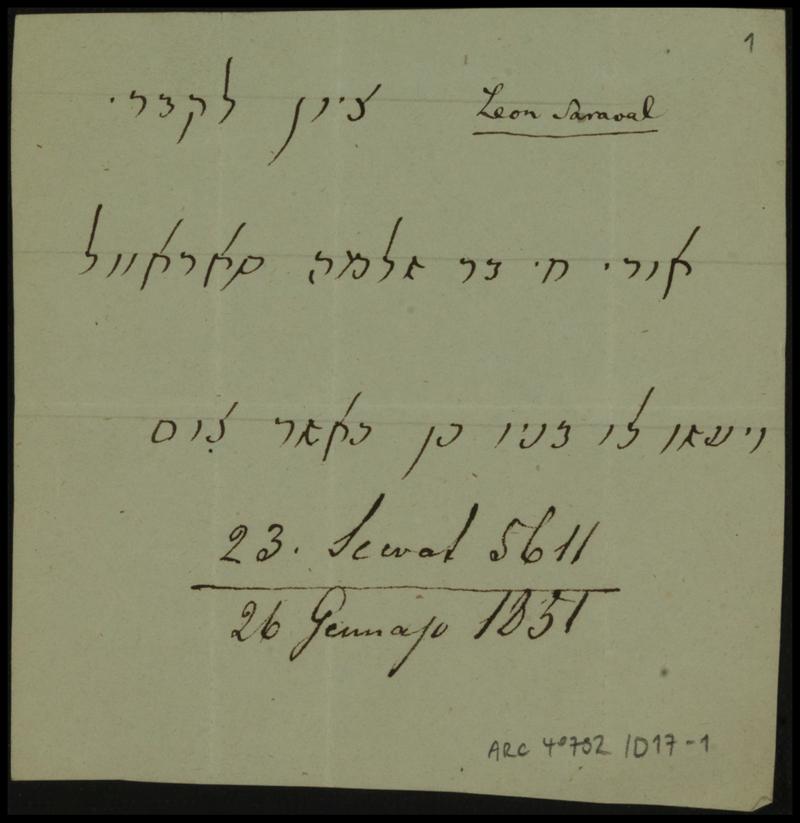 1
ציון לקברי Leon Saraval
אורי חי בר שלמה סאראוול
ויעשו לו בניו כן כאשר צום
23. Scevat 5611
26 Gennajo 1851
ARC 4°792 /D17-1